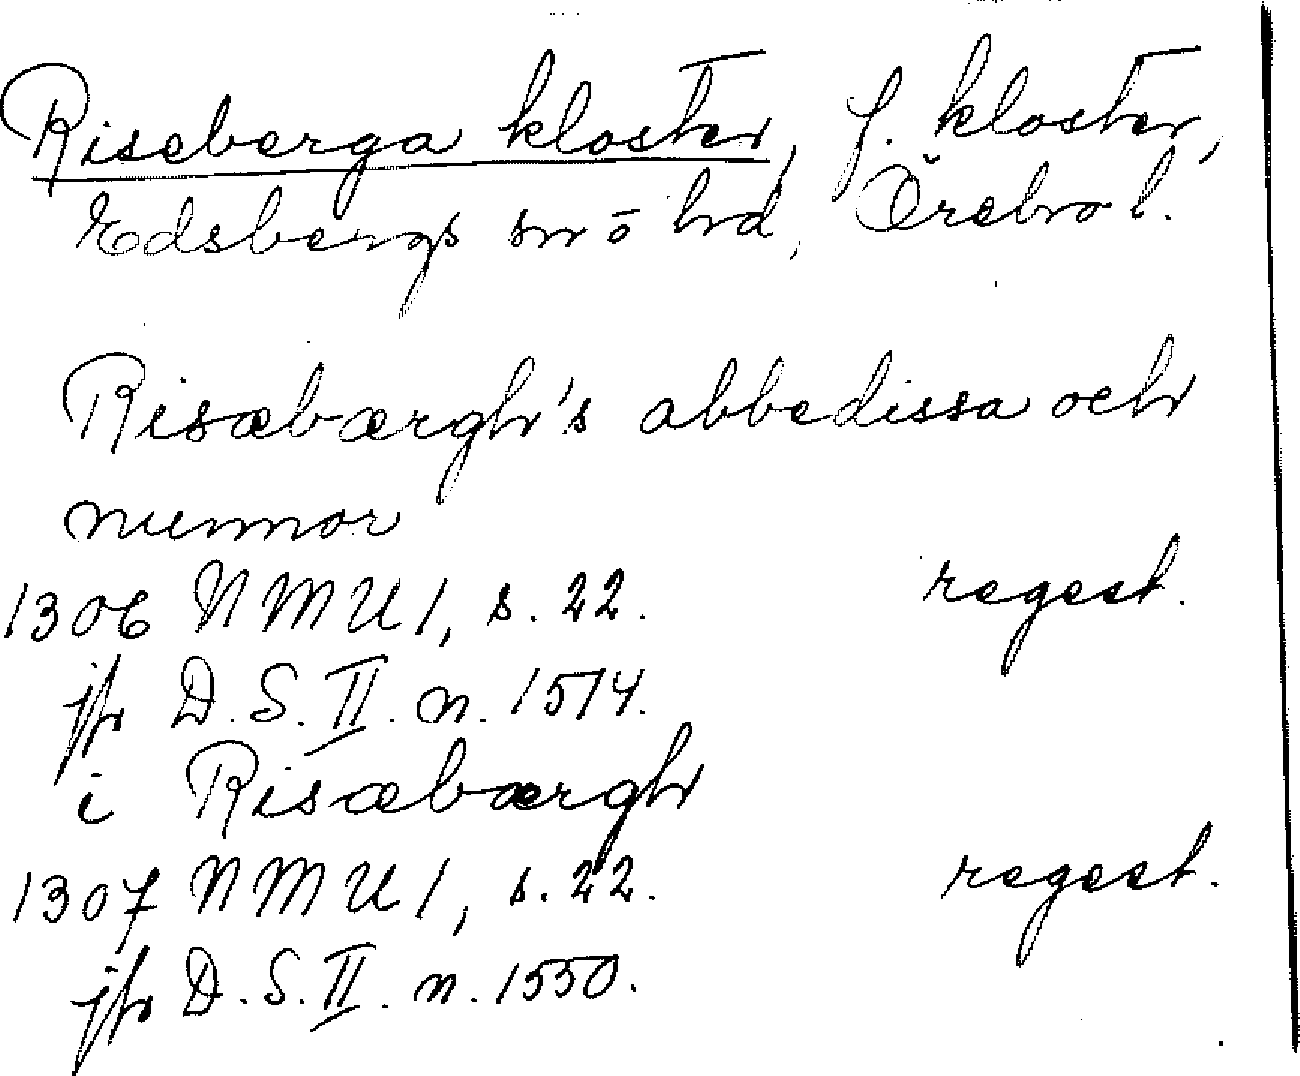 Riseberga kloster, f. kloster,
Edsbergs sn ö hd, Örebro l.
Risæbærgh's abbedissa och
nunnor
1306 NMU 1, s. 22. regest.
jfr D. S. II. n. 1514.
i Risæbærgh
1307 NMU 1, s. 22. regest.
jfr D. S. II. n. 1550.